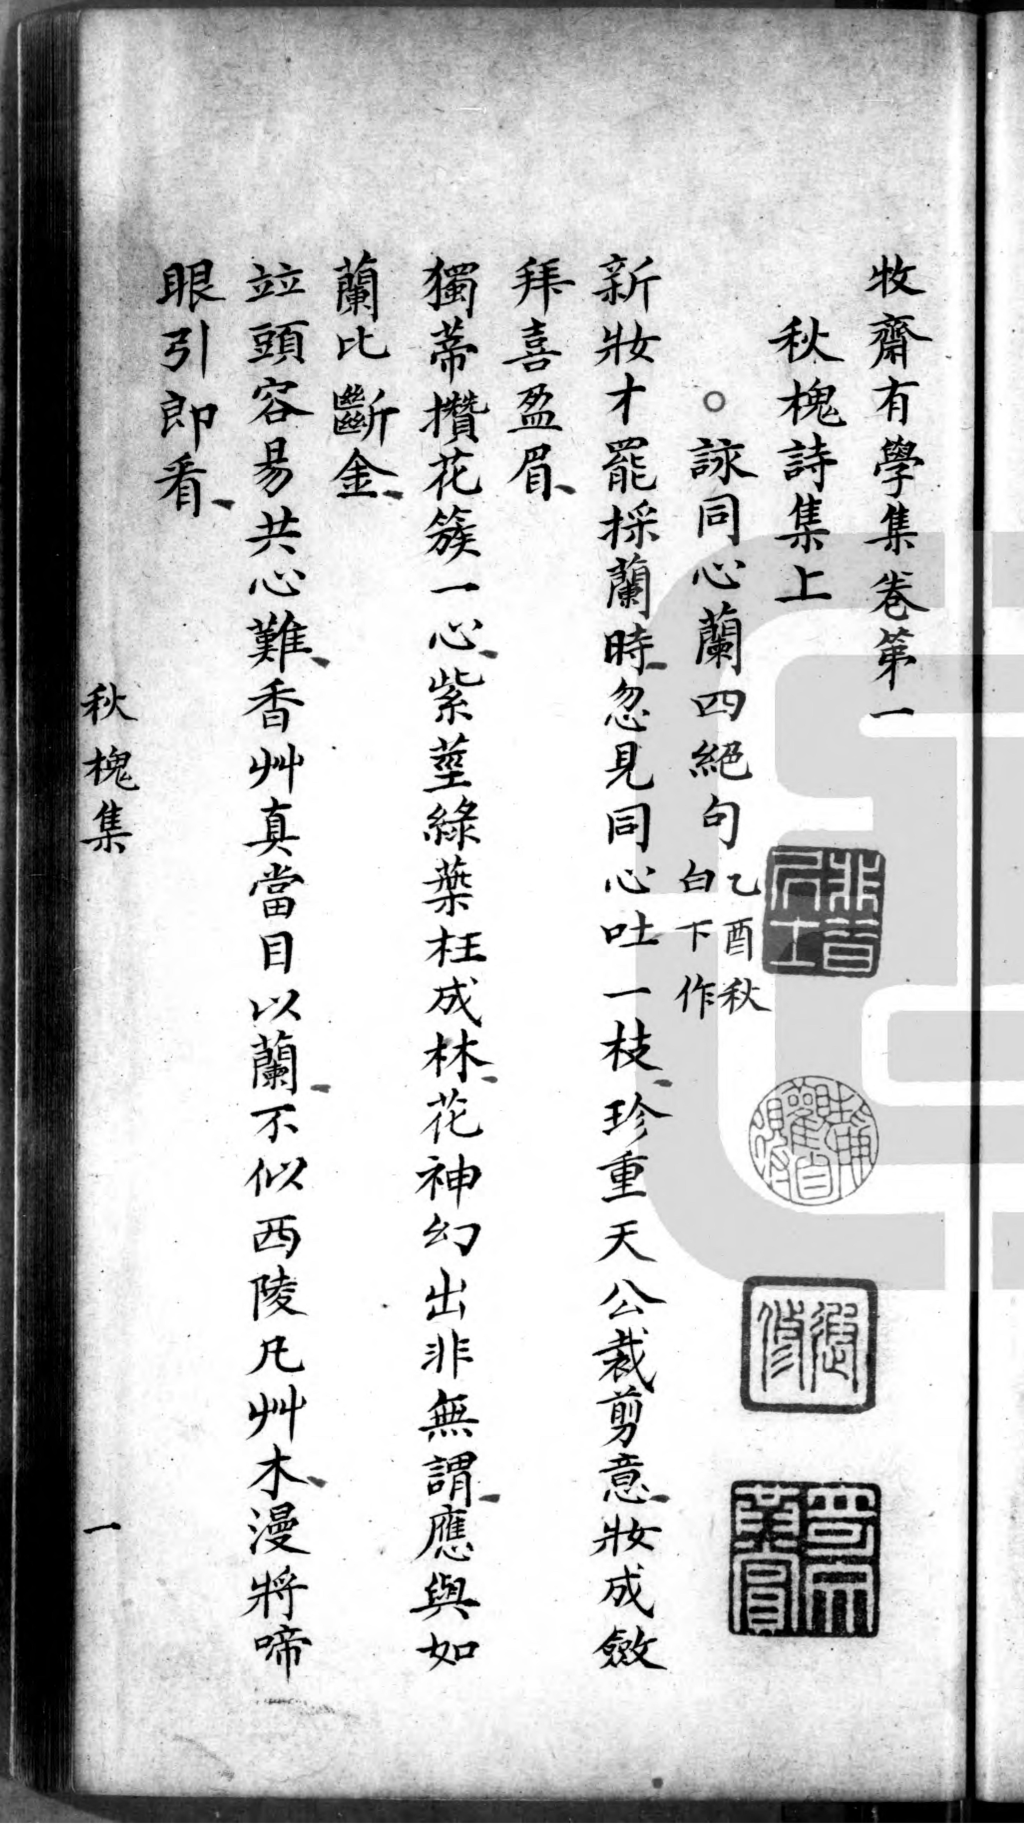 牧齋有學集卷第一
秋槐詩集上
○詠同心蘭四絕句乙酉秋
白下作
新妝才罷採蘭時忽見同心吐一枝珍重天公裁剪意妝成斂
拜喜盈眉
獨蒂攢花簇一心紫莖綠葉枉成林花神幻出非無謂應與如
蘭比斷金
竝頭容易共心難香艸真當目以蘭不似西陵凡艸木漫將啼
眼引郎看
秋槐集
一